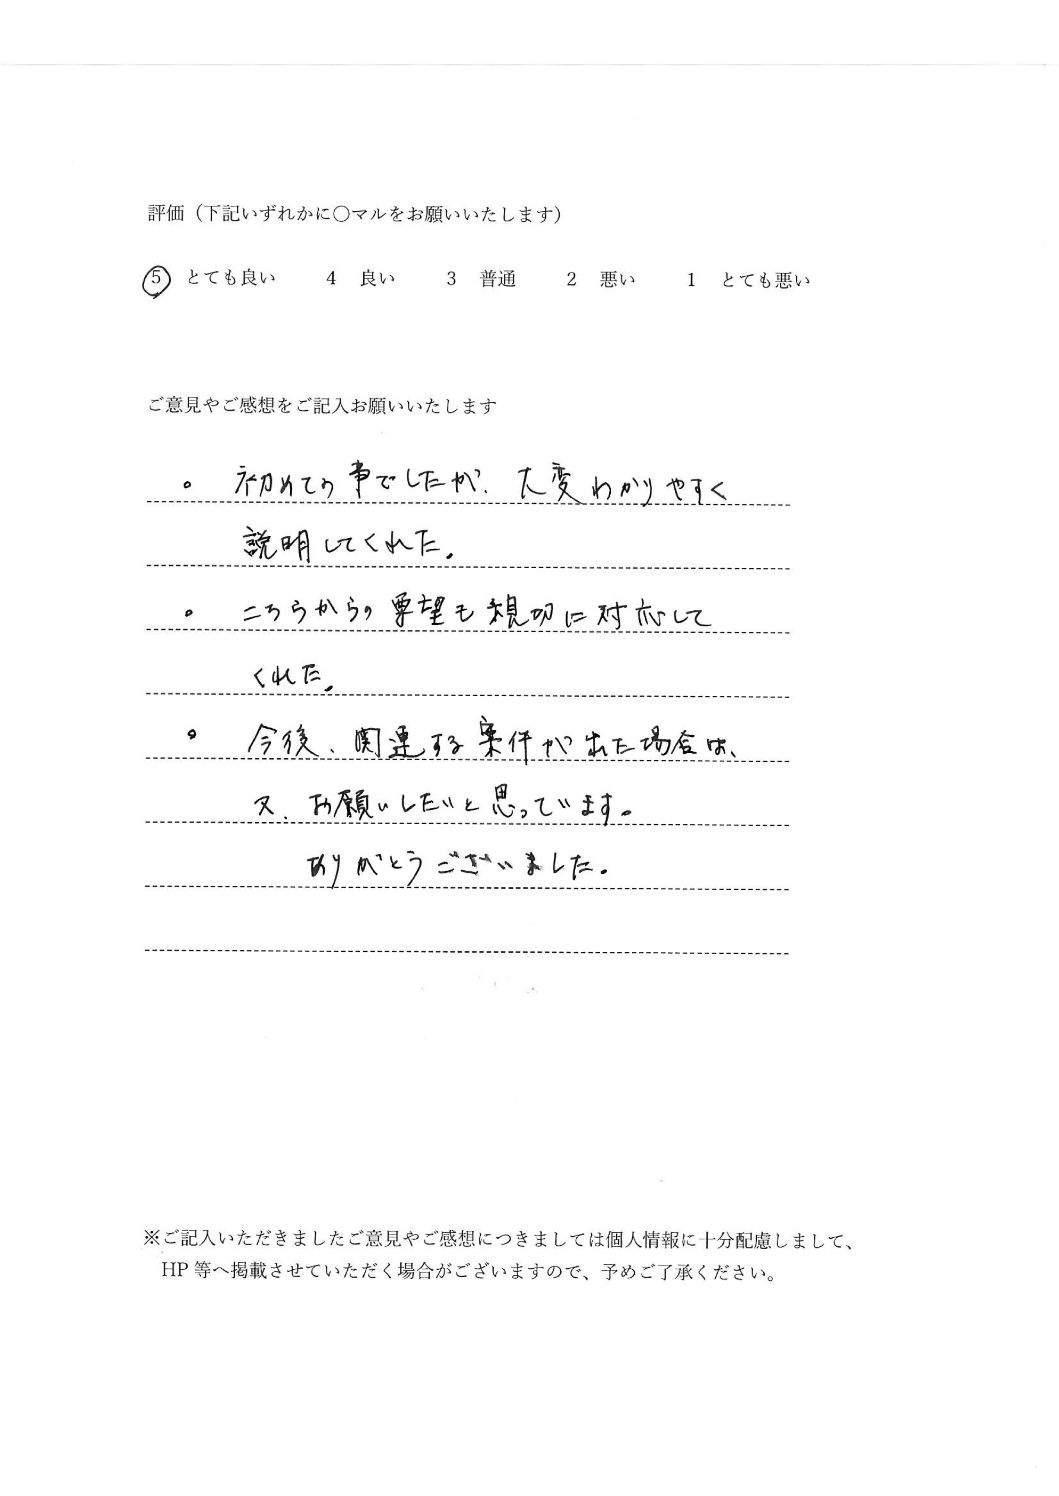 評価（下記いずれかに〇マルをお願いいたします）
5 とても良い 4 良い 3 普通 2 悪い 1 とても悪い
ご意見やご感想をご記入お願いいたします
。 初めての事でしたが、大変わかりやすく
説明してくれた。
。 こちらからの要望も親切に対応して
くれた。
。 今後、関連する案件が出た場合は、
又、お願いしたいと思っています。
ありがとうございました。
※ご記入いただきましたご意見やご感想につきましては個人情報に十分配慮しまして、
HP 等へ掲載させていただく場合がございますので、予めご了承ください。